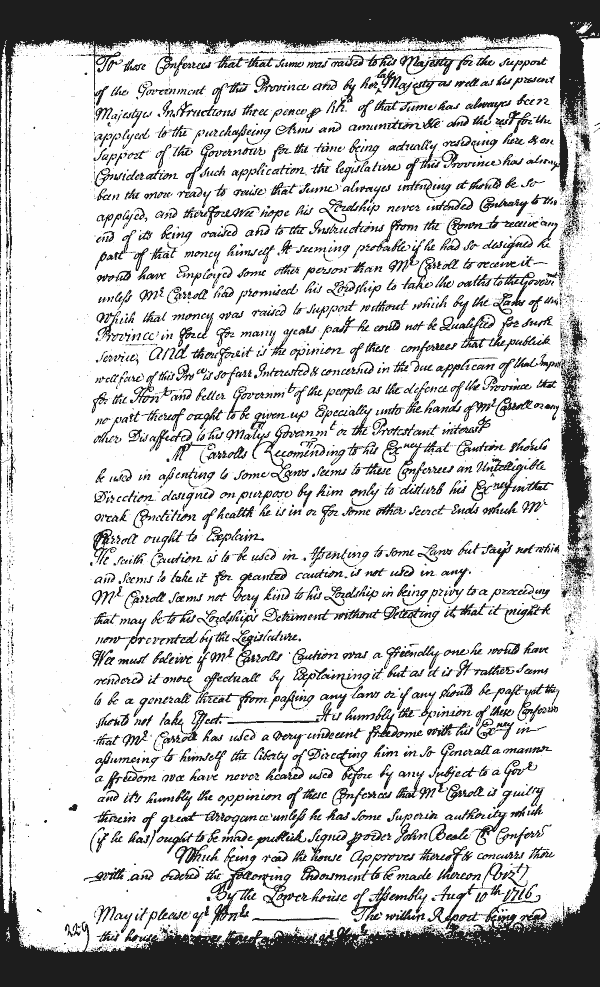 To those Conferees that that sume was raised to his Majesty for the support
of the Government of this Province and by her late Majesty as well as his present
Majestyes Instructions three pence p hhd of that sume has alwayes been
applyed to the purchaseing Arms and amunition &c and the rest for the
support of the Governour for the time being actually resideing here & on
Consideration of such application the legislature of this Province has alway
been the more ready to raise that sume alwayes intending it should be so
applyed, and therefore wee hope his Lordship never intended Contrary to the
end of its being raised and to the Instructions from the Crown to receive any
part of that money himself It seeming probable if he had so designed he
would have Employed some other person than Mr Carroll to receive it
unless Mr Carroll had promised his Lordship to take the oaths to the Governt
Which that money was raised to support without which by the Laws of this
Province in force for many years past he could not be Qualified for such
service, And therefore it is the opinion of these conferrees that the publick
wellfare of this Prove is so farr Interested & concerned in the due applican of that Impost
for the Honr and better Governmt of the people as the defence of the Province that
no part thereof ought to be given up Especially unto the hands of Mr Carroll or any
other Disaffected to his Matys Governmt or the Protestant interest
Mr Carrolls Recomending to his Excney that Caution should
be used in assenting to some Laws seems to these Conferees an Unintelligible
Direction designed on purpose by him only to disturb his Excney in that
weak Condition of health he is in or for some other secret Ends which Mr
Carroll ought to Explain.
He saith Caution is to be used in Assenting to some Laws but says not which
and seems to take it for granted caution is not used in any.
Mr Carroll seems not very kind to his Lordship in being privy to a proceeding
that may be to his Lordships Detriment without Detecting it, that it might be
now prevented by the Legislature.
Wee must beleive if Mr Carrolls Caution was a friendly one he would have
rendered it more effectuall by Explaining it but as it is It rather seems
to be a generall threat from passing any laws or if any should be past yet they
should not take Effect. It is humbly the opinion of these Conferees
that Mr Carroll has used a very undecent freedome with his Excney in
assumeing to himself the liberty of Directing him in so Generall a manner
a freedom wee have never heared used before by any Subject to a Govr
and its humbly the oppinion of these Conferrees that Mr Carroll is guilty
therein of great Arrogance unless he has some Superior authority which
(if he has) ought to be made publick Signed p order John Beale Ck Conferr
Which being read the house Approves thereof & concurrs there
with and ordered the following Endorsment to be made thereon (Vizt)
By the Lower house of Assembly Augt 10th 1716
May it please yr Honrs The within Report being read
this house approves thereof and
229